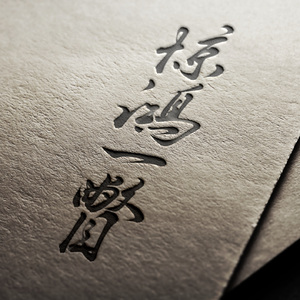 惊鸿一瞥